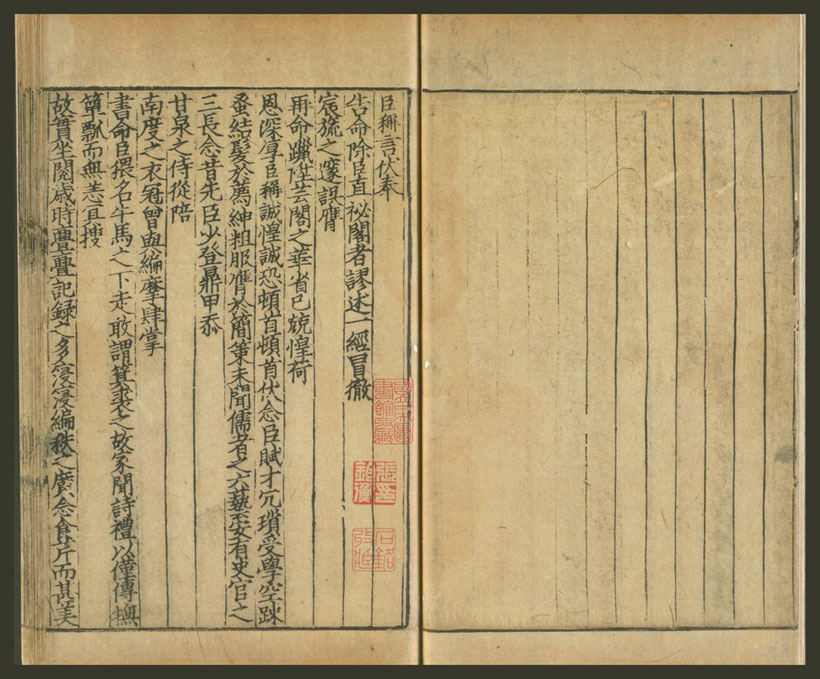 臣稱言伏奉
告命除臣直祕閣者謬述一經冒徹
宸旒之邃誤膺
再命躐陞芸閣之華省己兢惶荷
恩深厚臣稱誠惶誠恐頓首頓首伏念臣賦才冗瑣受學空踈
蚤結髮於薦紳粗服膺於簡策未聞儒者之六藝妄有史官之
三長念昔先臣少登鼎甲忝
甘泉之侍從陪
南度之衣冠曾與編摩肆掌
書命臣猥名牛馬之下走敢謂箕裘之故家聞詩禮以僅傳撫
簞瓢而無恙亙搜
故實坐閱歲時亹亹記録之多寖寖編秩之廣念食芹而甚美
張印鈞衡
石銘收藏